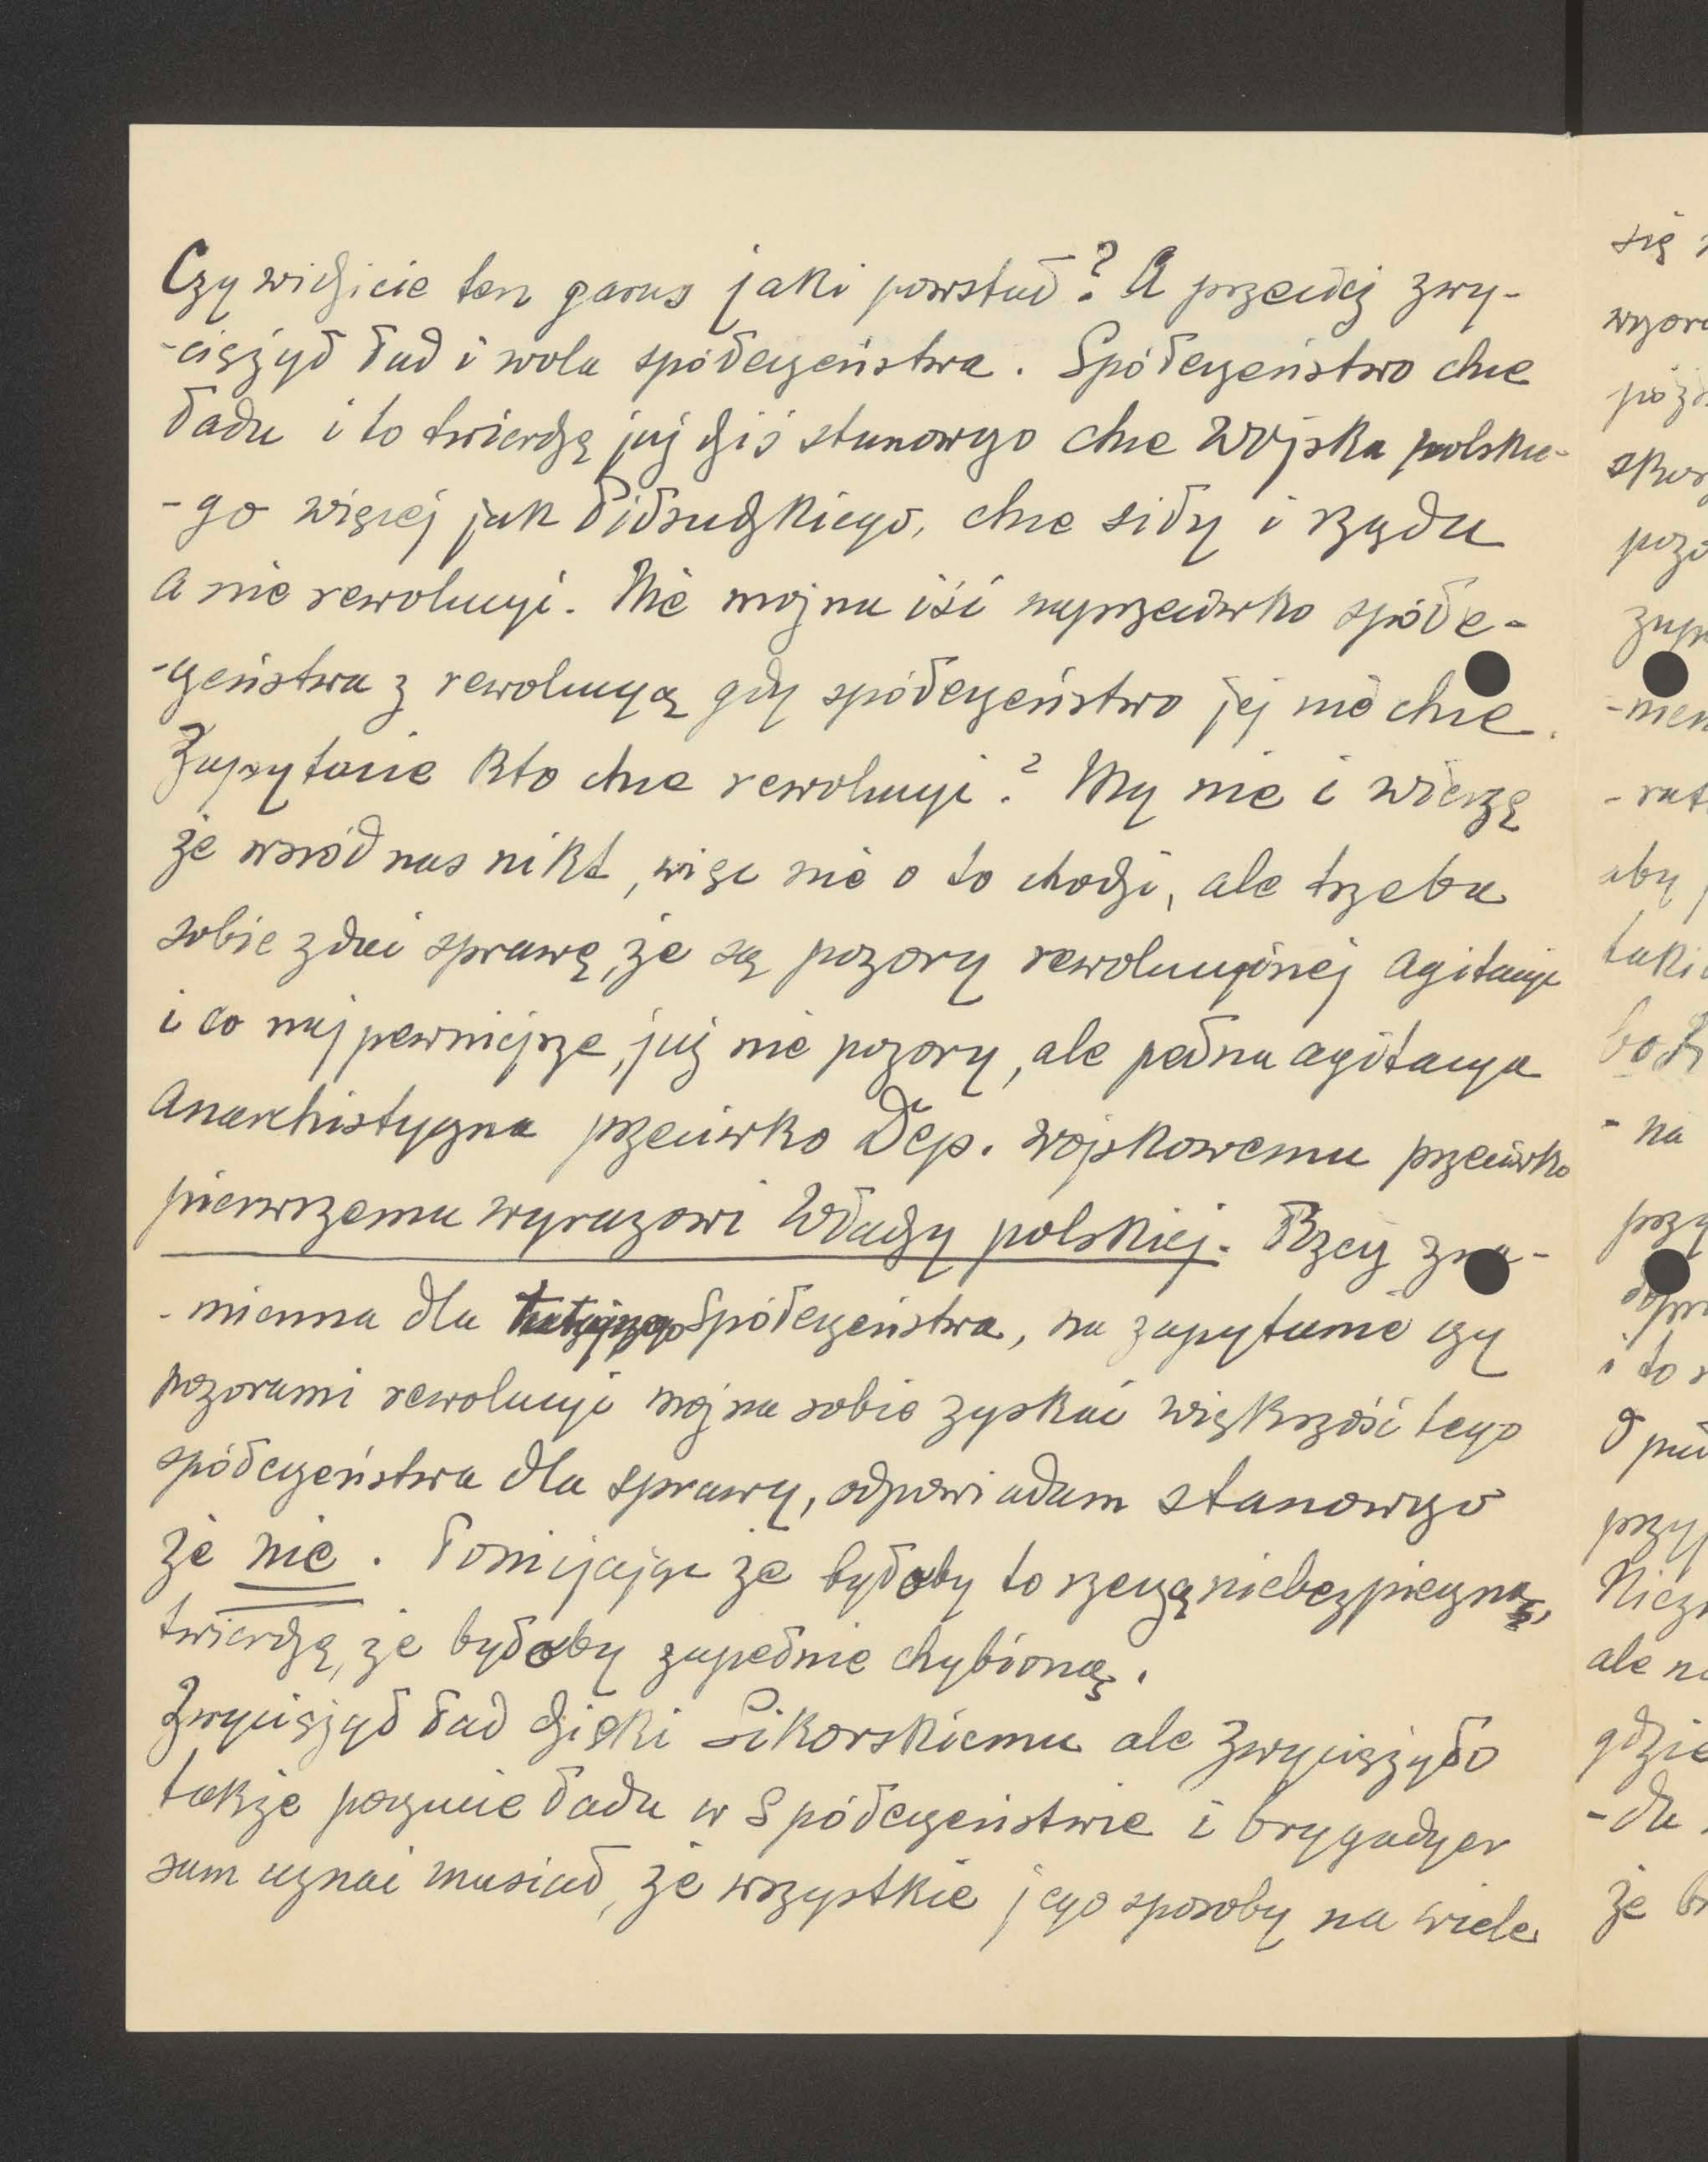 Czy widzicie ten garus jaki powstał? A przecież zwy-
-ciężył ład i wola spółeczeństwa. Spółeczeństwo chce
ładu i to twierdzę już dziś stanowczo chce Wojska polskie-
-go więcej jak Piłsudzkiego, chce siły i rządu
a nie rewolucyi. Nie można iść naprzeciwko spółe-
-czeństwa z rewolucyą gdy spółeczeństwo jej nie chce.
Zapytacie kto chce rewolucyi? My nie i wierzę
że wsród nas nikt, więc nie o to chodzi, ale trzeba
sobie zdać sprawę, że są pozory rewolucyjnej agitacyi
i co najpewniejsze, już nie pozory, ale pełna agitacya
anarchistyczna przeciwko Dep. wojskowemu przeciwko
pierwszemu wyrazowi Władzy polskiej. Rzecz zna-
-mienna dla Spółeczeństwa, na zapytanie czy
pozorami rewolucyi można sobie zyskać większość tego
spółeczeństwa dla sprawy, odpowiadam stanowczo
że nie. Pomijając że byłoby to rzeczą niebezpieczną,
twierdzę, że byłoby zupełnie chybioną.
Zwyciężył ład dzięki Sikorskiemu ale zwyciężyło
także poczucie ładu w Spółeczeństwie i brygadyer
sam uznać musiał, że wszystkie jego sposoby na wiele
się
-na
i to
ale
gdzie
-dla
że